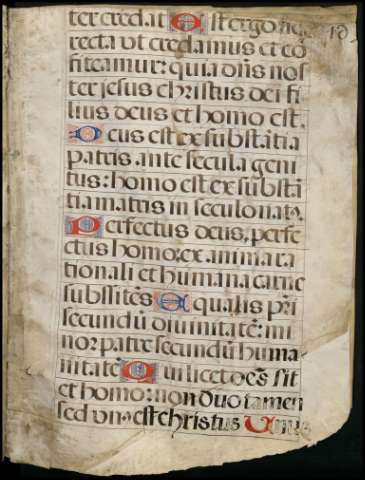 ter credat Est ergo fides
recta ut credamus et co
fiteamur: quia dñs nos
ter jesus christus dei fi
lius deus et homo est.
Deus est ex substãtia
patris ante secula geni
tus: homo est ex substã
tia matris in seculo natꝰ.
Perfectus deus, perfe
ctus homo: ex anima ra
tionali et humana carne
subsistẽs Equalis pr̃i
secundũ divinitatẽ: mi
nor patre secundũ huma
nitatẽ Qui licet deꝰ sit
et homo: non duo tamen
sed unꝰ est christus Unus